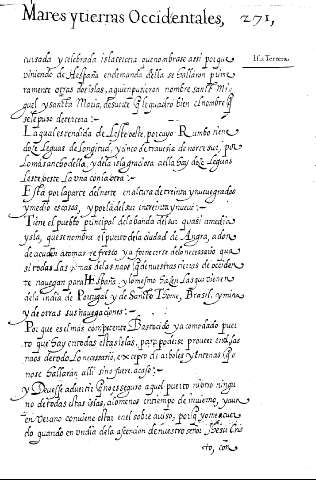 Mares y tierras Occidentales, 271,
Isla Tercera.
cuisada y celebrada isla tercera que nombrase assi porque
viniendo de Hespaña en demanda della se hallaron prime
ramente otras dos islas, a quien pusieron nombre sanct Mi
guel y sancta Maria, de suerte que le quadro bien el nombre que
se le puso de tercera:~
La qual es tendida de Leste oeste, por cuyo Rumbo tiene
doze leguas de longitud, y cinco de travesia de norte sur, por
lo mas ancho della, y de la isla graciosa a ella hay doze leguas
leste oeste la una con la otra:~
Esta por la parte del norte en altura de treinta y nueve grados
y medio escasos, y por la del sur en treinta y nueve:~
Tiene el pueblo principal de la banda del sur quasi a media
ysla, que se nombra el puerto de la ciudad de Angra, a don
de acuden a tomar refresco y a fornecerse de lo necessario qua
si todas las de las naos que de nuestras tierras de occiden
te navegan para Hespaña y lo mesmo hazen las que vienen
de la india de Portugal y de Sancto Thome, Brasil, y mina
y de otras sus navegaciones:~
Porque es el mas competente Bastecido y acomodado puer
to que hay en todas estas islas, para poderse proveer en el las
naos de todo lo necessario, excepto de arboles y entenas que
no se hallaran alli sino fuere acaso:~
y Devesse advertir que no es seguro aquel puerto ni otro ningu
no de todas estas islas, alomenos en tiempo de invierno, y aun
en verano conviene estar en el sobre aviso, porque yo me acuer
do quando en un dia de la ascension de nuestro señor Jhesu Cris
to, con